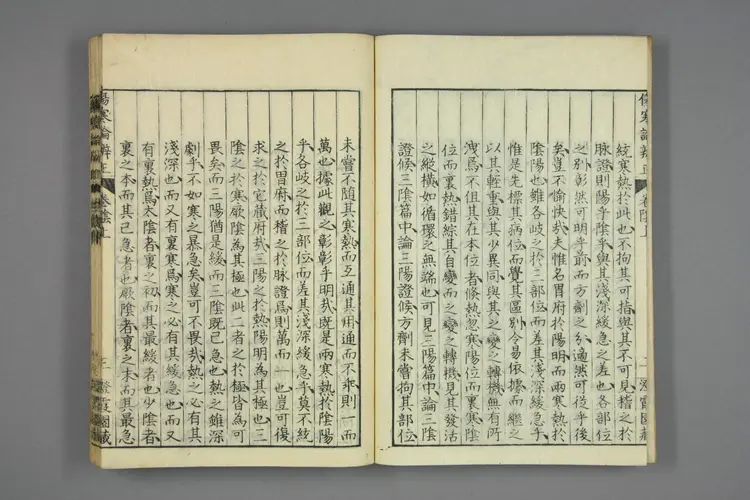 傷寒論辨正 卷陰上
統寒熱於此也不拘其可指與其不可見稽之於
脉證則陽乎陰乎與其淺深緩急之差也各部位
之別彰然可明乎前而方劑之分適然可從乎後
矣豈不愉快哉夫惟名胃府於陽明而兩寒熱於
陰陽也雖各岐之於三部位而差其淺深緩急乎
惟是先標其病位而覺其區別令易依據而繼之
以其輕重與其少異同與其之變之轉機無有所
洩焉不但其在本位者倏熱忽寒陽位而裏寒陰
位而裏熱錯綜其自變而之變之轉機見其發活
之縱橫如循環之無端也可見三陽篇中論三陰
證候三陰篇中論三陽證候方劑未嘗拘其部位
未嘗不隨其寒熱而互通其用通而不乖則一而
萬也據此觀之彰彰乎明哉既是兩寒熱於陰陽
乎各岐之於三部位而差其淺深緩急乎莫不統
之於胃府而稽之於脉證焉則萬而一也豈可復
求之於它藏府哉三陽之於熱陽明為其極也三
陰之於寒厥陰為其極也此二者之於極皆為可
畏矣而三陽猶是緩而三陰既已急也熱之雖深
劇乎不如寒之暴急矣豈可不畏哉熱之必有其
淺深也而又有裏寒焉寒之必有其緩急也而又
有裏熱焉太陰者裏之初而其最緩者也少陰者
裏之本而其已急者也厥陰者裏之末而其最急
傷寒論辨正 卷陰上 三 澄霞園藏